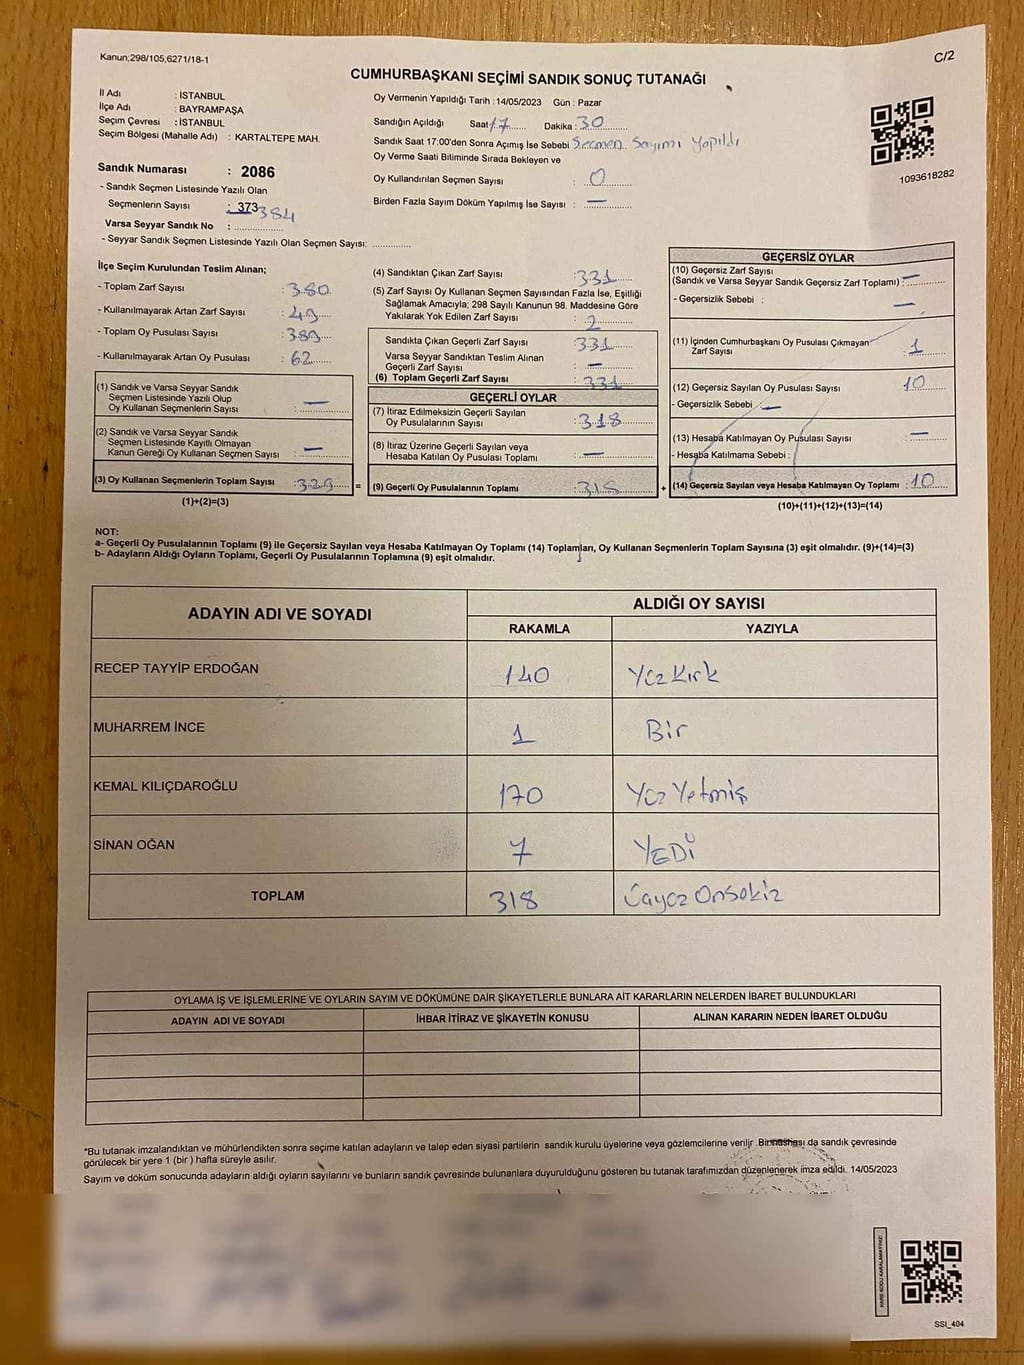 Kanun;298/105,6271/18-1
C/2
CUMHURBAŞKANI SEÇİMİ SANDIK SONUÇ TUTANAĞI
İl Adı : İSTANBUL
İlçe Adı : BAYRAMPAŞA
Seçim Çevresi : İSTANBUL
Seçim Bölgesi (Mahalle Adı) : KARTALTEPE MAH.
Oy Vermenin Yapıldığı Tarih : 14/05/2023 Gün : Pazar
Sandığın Açıldığı Saat 17 Dakika : 30
Sandık Saat 17:00'den Sonra Açımış İse Sebebi Seçmen Sayımı Yapıldı
Oy Verme Saati Bitiminde Sırada Bekleyen ve
Oy Kullandırılan Seçmen Sayısı : 0
Birden Fazla Sayım Döküm Yapılmış İse Sayısı : —
1093618282
Sandık Numarası : 2086
- Sandık Seçmen Listesinde Yazılı Olan
Seçmenlerin Sayısı : 373 384
Varsa Seyyar Sandık No :
- Seyyar Sandık Seçmen Listesinde Yazılı Olan Seçmen Sayısı:
İlçe Seçim Kurulundan Teslim Alınan;
- Toplam Zarf Sayısı : 380
- Kullanılmayarak Artan Zarf Sayısı : 49
- Toplam Oy Pusulası Sayısı : 389
- Kullanılmayarak Artan Oy Pusulası : 62
(1) Sandık ve Varsa Seyyar Sandık
Seçmen Listesinde Yazılı Olup
Oy Kullanan Seçmenlerin Sayısı : —
(2) Sandık ve Varsa Seyyar Sandık
Seçmen Listesinde Kayıtlı Olmayan
Kanun Gereği Oy Kullanan Seçmen Sayısı : —
(3) Oy Kullanan Seçmenlerin Toplam Sayısı : 329 =
(1)+(2)=(3)
(4) Sandıktan Çıkan Zarf Sayısı : 331
(5) Zarf Sayısı Oy Kullanan Seçmen Sayısından Fazla İse, Eşitliği
Sağlamak Amacıyla; 298 Sayılı Kanunun 98. Maddesine Göre
Yakılarak Yok Edilen Zarf Sayısı : 2
Sandıkta Çıkan Geçerli Zarf Sayısı : 331
Varsa Seyyar Sandıktan Teslim Alınan
Geçerli Zarf Sayısı : —
(6) Toplam Geçerli Zarf Sayısı : 331
GEÇERLİ OYLAR
(7) İtiraz Edilmeksizin Geçerli Sayılan
Oy Pusulalarının Sayısı : 318
(8) İtiraz Üzerine Geçerli Sayılan veya
Hesaba Katılan Oy Pusulası Toplamı : —
(9) Geçerli Oy Pusulalarının Toplamı : 318 +
GEÇERSİZ OYLAR
(10) Geçersiz Zarf Sayısı
(Sandık ve Varsa Seyyar Sandık Geçersiz Zarf Toplamı) : —
- Geçersizlik Sebebi : —
(11) İçinden Cumhurbaşkanı Oy Pusulası Çıkmayan
Zarf Sayısı : 1
(12) Geçersiz Sayılan Oy Pusulası Sayısı : 10
- Geçersizlik Sebebi : —
(13) Hesaba Katılmayan Oy Pusulası Sayısı : —
- Hesaba Katılmama Sebebi :
(14) Geçersiz Sayılan veya Hesaba Katılmayan Oy Toplamı : 10
(10)+(11)+(12)+(13)=(14)
NOT:
a- Geçerli Oy Pusulalarının Toplamı (9) ile Geçersiz Sayılan veya Hesaba Katılmayan Oy Toplamı (14) Toplamları, Oy Kullanan Seçmenlerin Toplam Sayısına (3) eşit olmalıdır. (9)+(14)=(3)
b- Adayların Aldığı Oyların Toplamı, Geçerli Oy Pusulalarının Toplamına (9) eşit olmalıdır.
ADAYIN ADI VE SOYADI
ALDIĞI OY SAYISI
RAKAMLA YAZIYLA
RECEP TAYYİP ERDOĞAN 140 Yüz Kırk
MUHARREM İNCE 1 Bir
KEMAL KILIÇDAROĞLU 170 Yüz Yetmiş
SİNAN OĞAN 7 YEDİ
TOPLAM 318 Üçyüz Onsekiz
OYLAMA İŞ VE İŞLEMLERİNE VE OYLARIN SAYIM VE DÖKÜMÜNE DAİR ŞİKAYETLERLE BUNLARA AİT KARARLARIN NELERDEN İBARET BULUNDUKLARI
ADAYIN ADI VE SOYADI İHBAR İTİRAZ VE ŞİKAYETİN KONUSU ALINAN KARARIN NEDEN İBARET OLDUĞU
*Bu tutanak imzalandıktan ve mühürlendikten sonra seçime katılan adayların ve talep eden siyasi partilerin sandık kurulu üyelerine veya gözlemcilerine verilir .Bir nüshası da sandık çevresinde
görülecek bir yere 1 (bir ) hafta süreyle asılır.
Sayım ve döküm sonucunda adayların aldığı oyların sayılarını ve bunların sandık çevresinde bulunanlara duyurulduğunu gösteren bu tutanak tarafımızdan düzenlenerek imza edildi. 14/05/2023
KARE KODU KARALAMAYINIZ!
SSI_404